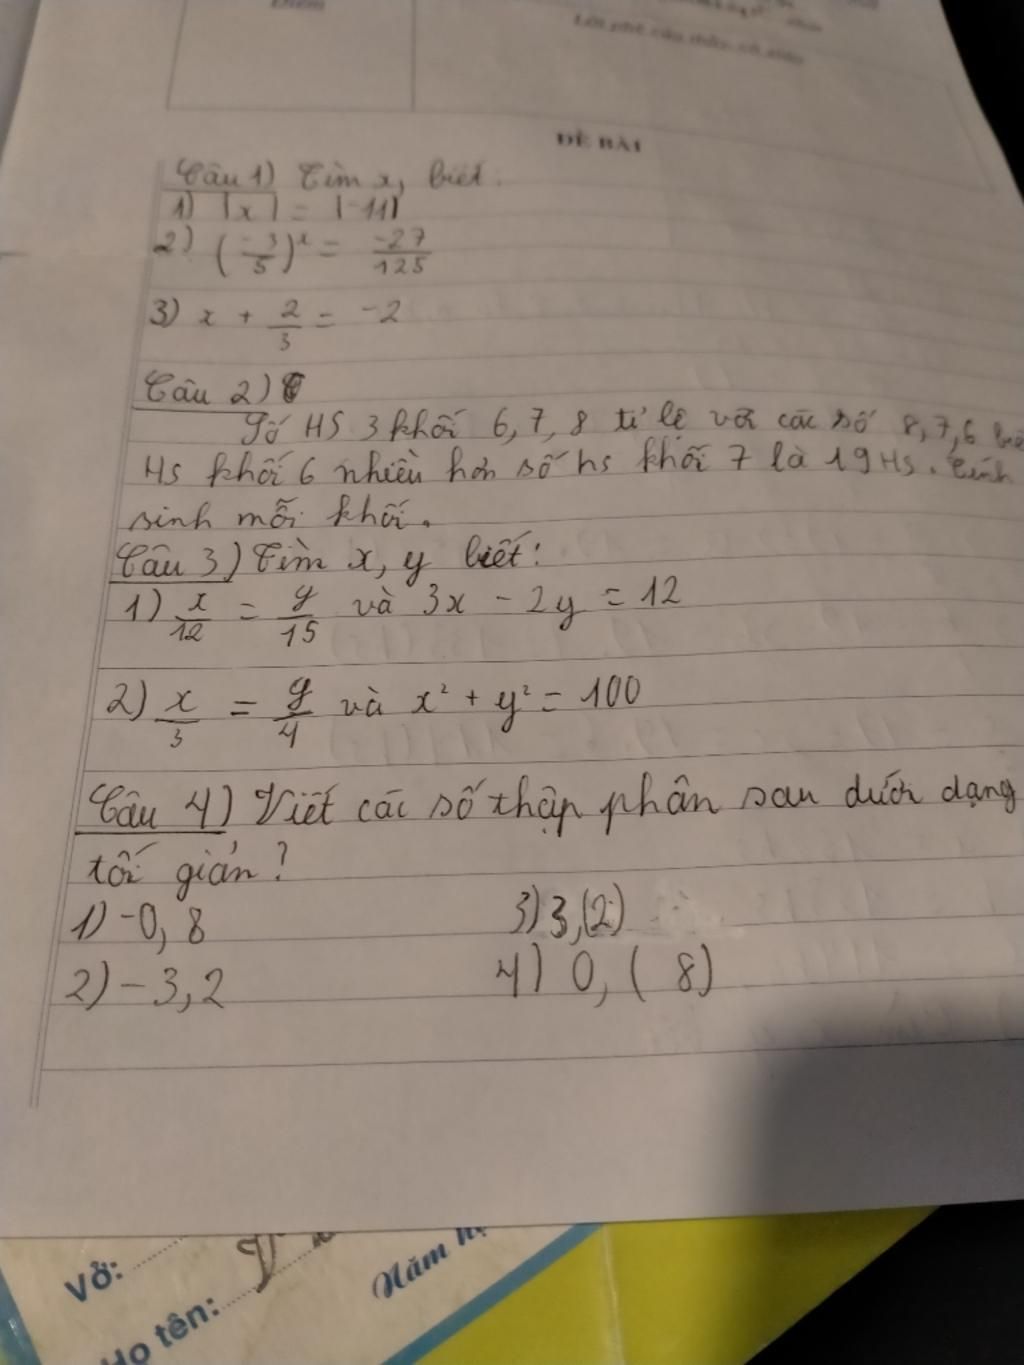 Điểm
Lời phê của thầy, cô giáo
ĐỀ BÀI
Câu 1) Tìm x, biết:
1) |x| = |-11|
2) (-3/5)^x = -27/125
3) x + 2/3 = -2
Câu 2)
Số HS 3 khối 6, 7, 8 tỉ lệ với các số 8, 7, 6
HS khối 6 nhiều hơn số hs khối 7 là 19 HS. Tính
sinh mỗi khối.
Câu 3) Tìm x, y biết:
1) x/12 = y/15 và 3x - 2y = 12
2) x/3 = y/4 và x² + y² = 100
Câu 4) Viết các số thập phân sau dưới dạng
tối giản?
1) -0, 8 3) 3,(2)
2) -3, 2 4) 0, ( 8)
Vở:
Năm
Họ tên: